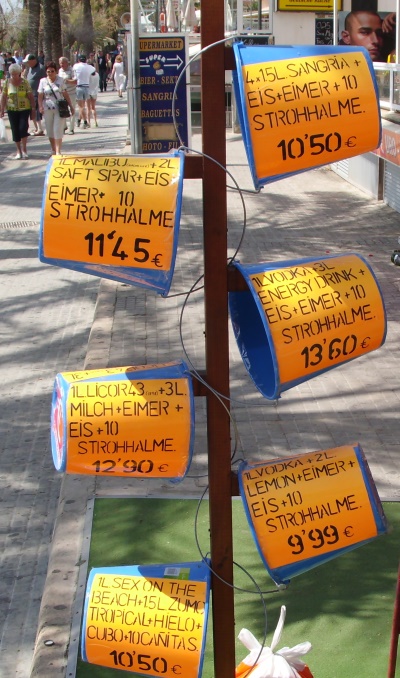 SUPERMARKET
SUPER
BIER - SEKT
SANGRIA
BAGUETTES
HOTO - FU
4.15L SANGRIA +
EIS+EIMER+10
STROHHALME.
10'50 €
1L MALIBU + 2L
SAFT SPAR+EIS
EIMER+ 10
STROHHALME
11'45 €
1L VODKA 3L
ENERGY DRINK +
EIS+EIMER+10
STROHHALME.
13'60 €
1L LICOR 43 + 3L
MILCH+EIMER +
EIS +10
STROHHALME
12'90 €
1L VODKA + 2L
LEMON+EIMER +
EIS+10
STROHHALME.
9'99 €
1L SEX ON THE
BEACH+1.5L ZUMO
TROPICAL+HIELO+
CUBO+10CAÑITAS.
10'50 €